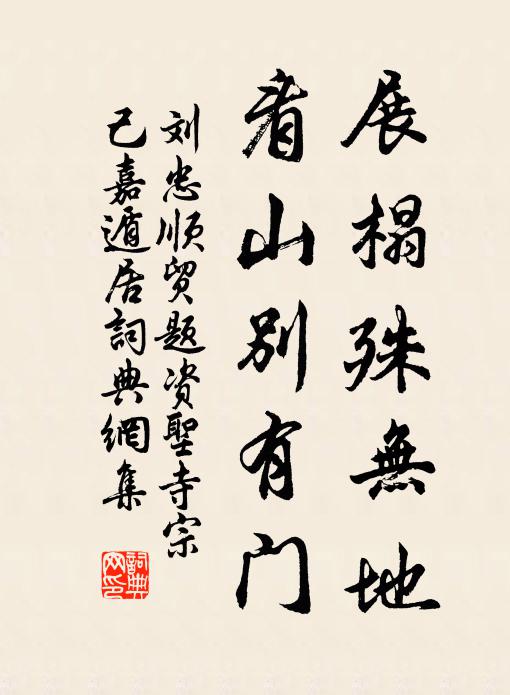 展榻殊無地
看山别有門
刘忠顺贸题资聖寺宗
己嘉遁居詞典網集
詞典
网印